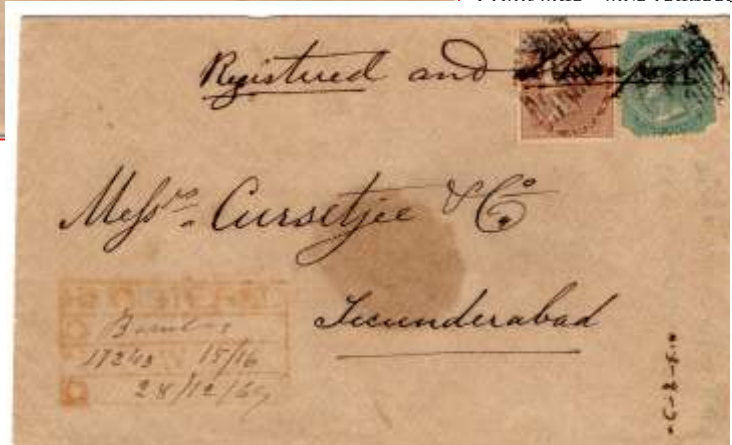 Registered and Stamped
Messrs. Cursetjee & Co.
Secunderabad
Bombay
15/16
28/12/69